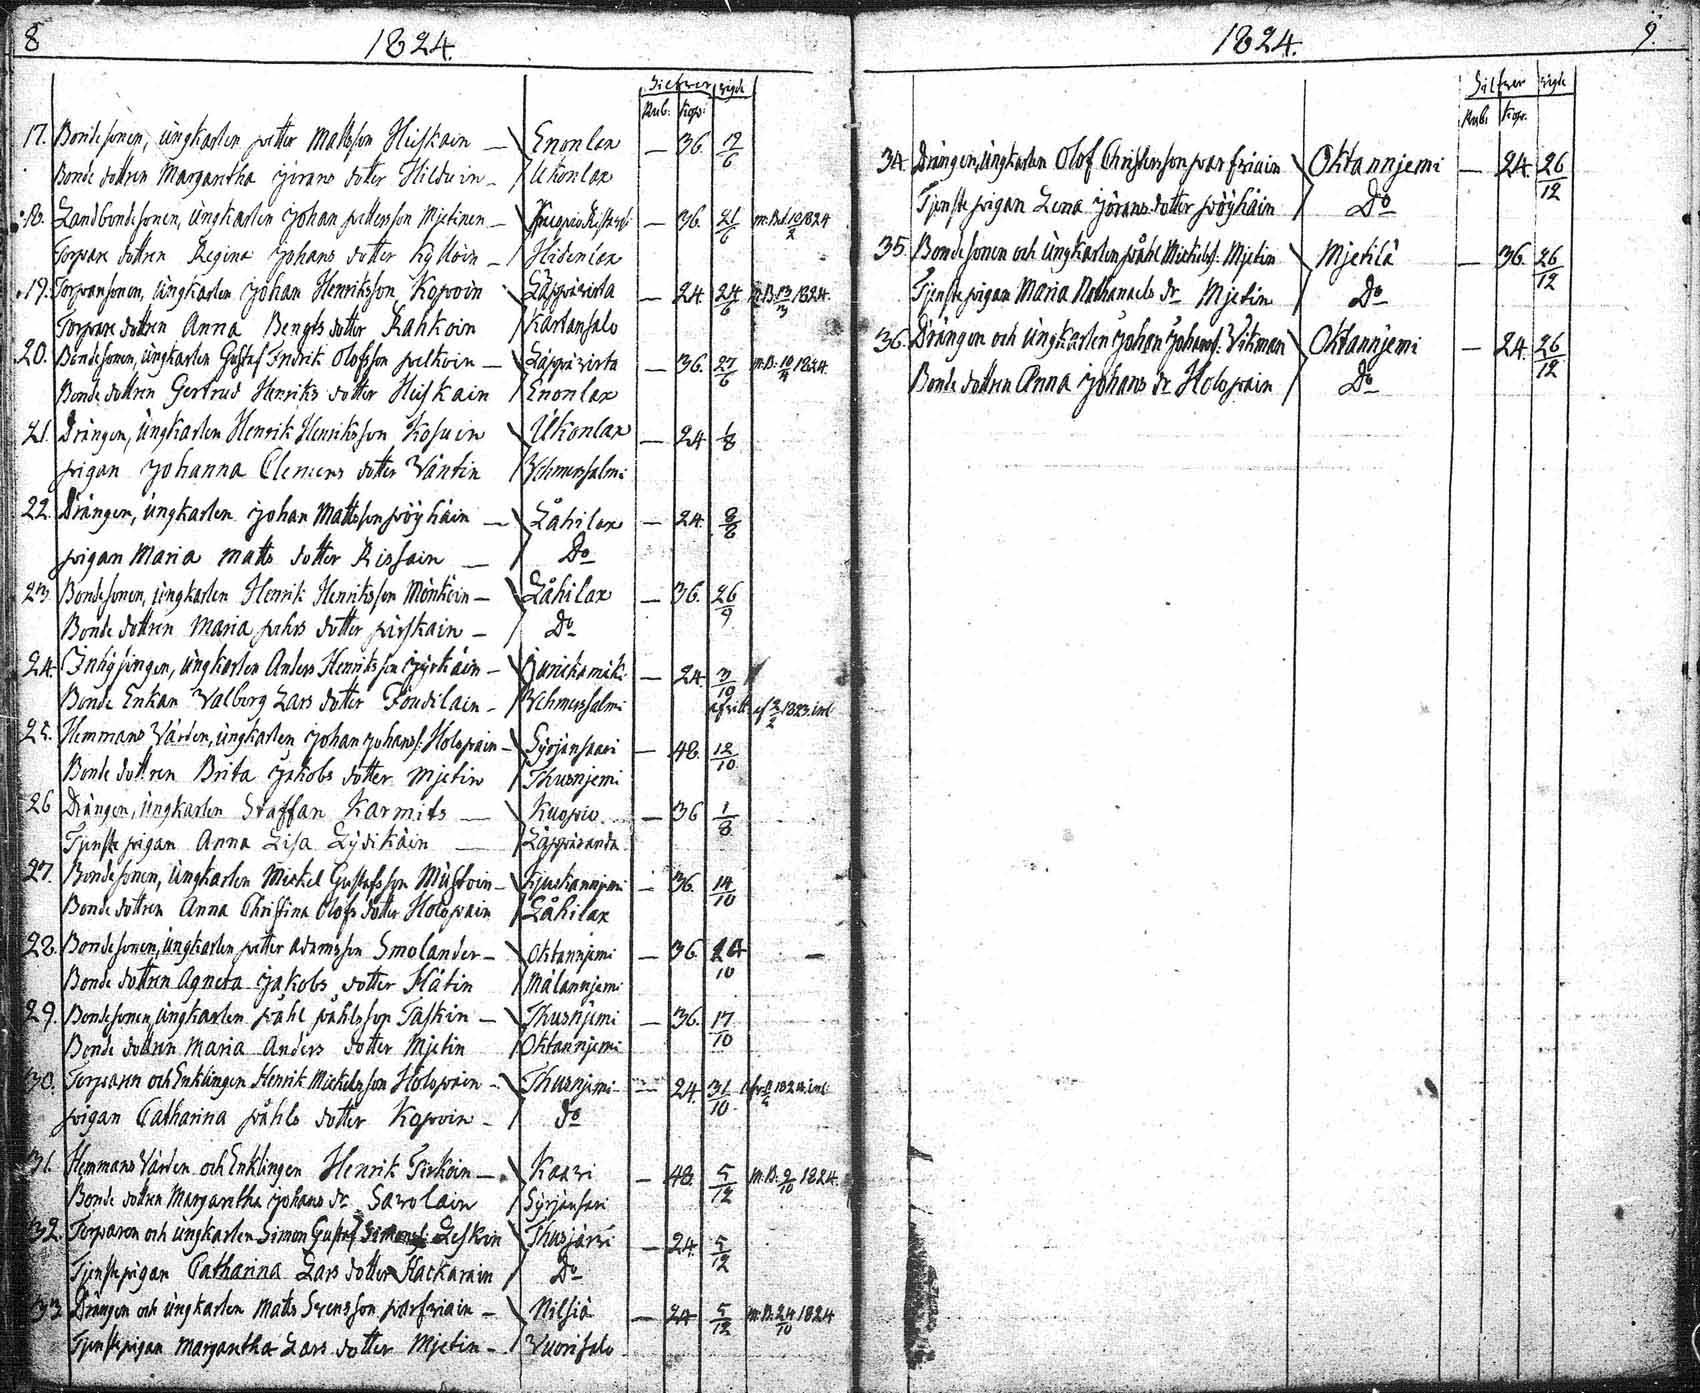 8
1824.
Silfver vigde
Rub. Kop:
17. Bondesonen, ungkarlen petter Mattsson Hiiskain — Enonlax — 36. 12/6
Bonde dottren Margaretha Jörans dotter Hilduin — Ukonlax
18. Landbondesonen, ungkarlen Johan pettersson Mjetinen — — 36. 21/6 1824
Torpare dottren Regina Johans dotter Kyllöin — Hidenlax
19. Torparesonen, ungkarlen Johan Henriksson Kopoin Läppävirta — 24 24/6 m.B. 13/3 1824.
Torpare dottren Anna Bengts dotter Rahkoin Kartansalo
20. Bondesonen, ungkarlen Gustaf Fredrik Olofsson pelkoin — Läppävirta — 36. 27/6 m.B. 1824.
Bonde dottren Gertrud Henriks dotter Hiiskain Enonlax
21. Drängen, ungkarlen Henrik Henriksson Kosuin Ukonlax — 24 1/8
pigan Johanna Clemens dotter Väntin Vehmersalmi
22. Drängen, ungkarlen Johan Mattsson pöyhäin — Låhilax — 24. 8/8
pigan Maria Matts dotter Rissain — Do
23. Bondesonen, ungkarlen Henrik Henriksson Mönköin — Låhilax — 36. 26/9
Bonde dottren Maria påhls dotter pirskain — Do
24. Inhysingen, ungkarlen Anders Henriksson Jyrkäin — Juurikamäki — 24. 3/10
Bonde Enkan Valborg Lars dotter — Vehmersalmi afvitt. af 2/2 1823. inl
25. Hemmans Värden, ungkarlen Johan Johanss: Holopain — Syrjänsaari — 48. 12/10
Bonde dottren Brita Jakobs dotter Mjetin Thusnjemi
26 Drängen, ungkarlen Staffan Karmits — Kuopio. — 36 1/8
Tjenste pigan Anna Lisa Lydikäin — Läppäranda
27. Bondesonen, ungkarlen Mickel Gustafsson Mustoin — — 36. 14/10
Bonde dottren Anna Christina Olofs dotter Holopain Låhilax
28. Bondesonen, ungkarlen petter Adamsson Smolander — Oktannjemi — 36. 24/10 —
Bonde dottren Agneta Jakobs dotter Hätin Målannjemi
29. Bondesonen, ungkarlen påhl påhlsson Taskin — Thusnjemi — 36. 17/10
Bonde dottren Maria Anders dotter Mjetin Oktannjemi
30. Torparen och Enklingen Henrik Mickelsson Holopain — Thusnjemi — 24. 31/10 1824. inl
pigan Catharina påhls dotter Kopoin — Do
31. Hemmans Värden och Enklingen Henrik Tirkoin — Kaavi — 48. 5/12 m.B. 9/10 1824.
Bonde dottren Margaretha Johans dr Savolain Syrjänsari
32. Torparen och ungkarlen Simon Gustaf Simonss: Leskin Thusjärvi — 24. 5/12
Tjenste pigan Catharina Lars dotter Hackarain Do
33. Drängen och ungkarlen Matts Svensson parfviain — Nilsiä — 24 5/12 m.B. 24/10 1824
Tjenste pigan Margaretha Lars dotter Mjetin — Vuorisalo
1824. 9.
Silfver vigde
Rub. Kop.
34. Drängen, ungkarlen Olof Christersson parfviain Oktannjemi — 24. 26/12
Tjenste pigan Lena Jörans dotter pöyhäin Do
35. Bondesonen och ungkarlen påhl Mickelss: Mjetin Mjetilä — 36. 26/12
Tjenste pigan Maria Nathanaels dr Mjetin Do
36. Drängen och ungkarlen Johan Johanss: Vikman Oktannjemi — 24. 26/12
Bonde dottren Anna Johans dr Holopain Do